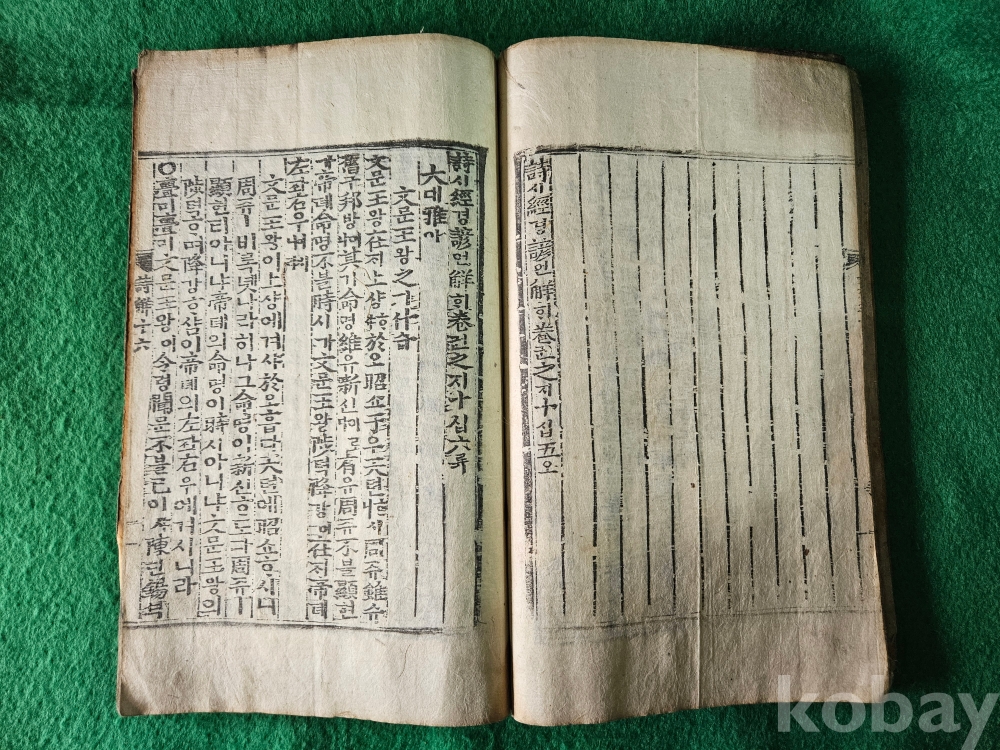 詩시經경諺언解ᄒᆡ卷권之지十십五오
詩시經경諺언解ᄒᆡ卷권之지十십六륙
大대雅아
文문王왕之지什십
文문王왕在ᄌᆡ上샹ᄒᆞ샤於오昭쇼于우天텬ᄒᆞ시니周쥬雖슈
舊구邦방이나其기命명維유新신이로다有유周쥬不블顯현
가帝뎨命명不블時시가文문王왕陟텩降강이在ᄌᆡ帝뎨
左좌右우
文문王왕이上샹에겨샤於오흡다天텬에昭쇼ᄒᆞ시니
周쥬ㅣ비록녯나라히나그命명이新신ᄒᆞ도다周쥬ㅣ
顯현티아니냐帝뎨의命명이時시아니냐文문王왕의
陟텩ᄒᆞ며降강ᄒᆞ샴이帝뎨의左좌右우에겨시니라
○亹미亹미文문王왕이令령聞문不블已이샤陳딘錫셕
詩解十六
kobay